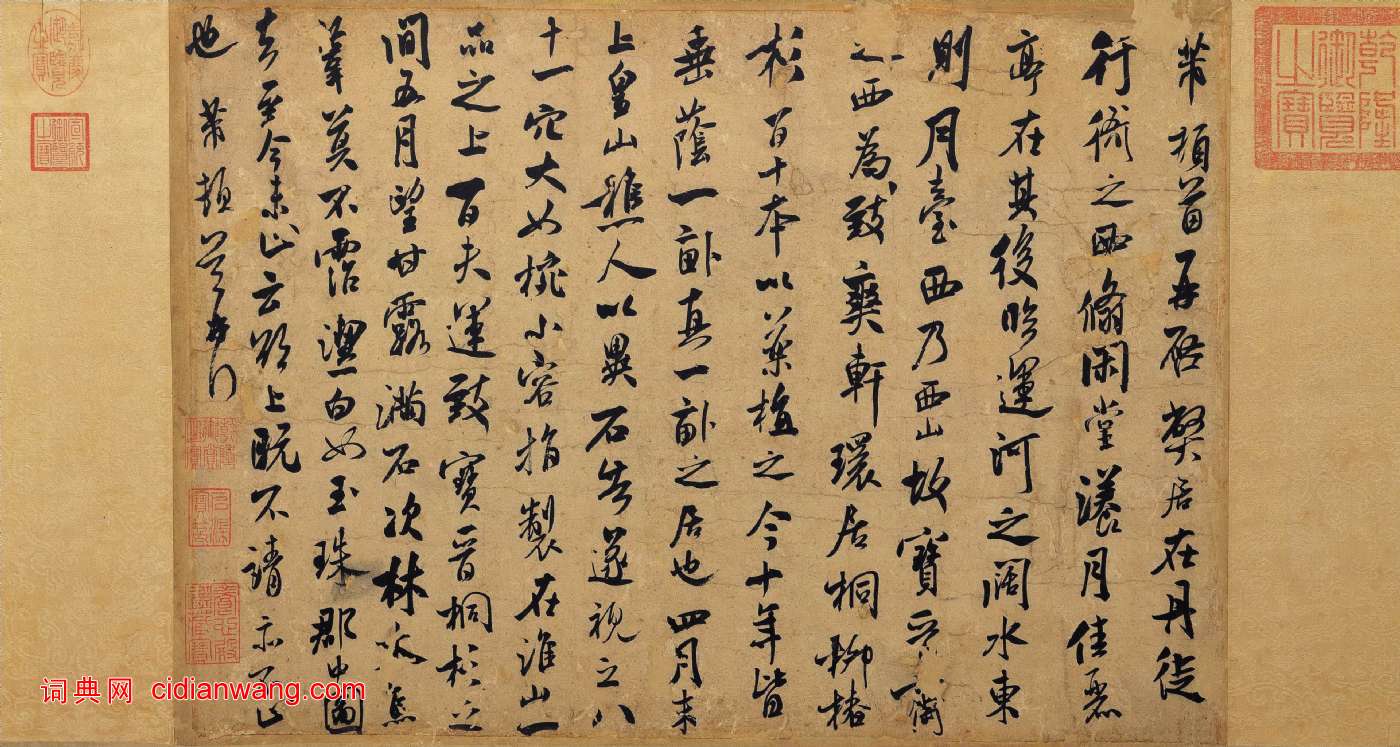 芾頓首再啓弊居在丹徒
行衙之西翛閑堂漾月佳麗
亭在其後臨運河之闊水東
則月臺西乃西山故寶晉齋
之西為致爽軒環居桐柳椿
杉百十本以藥植之今十年皆
垂蔭一畝真一畝之居也四月末
上皇山樵人以異石告遂視之八
十一穴大如椀小容指製在淮山一
品之上百夫運致寶晉桐杉之
間五月望甘露滿石次林木焉
葦莫不霑潔白如玉珠郡中圖
去至今未止云欲上既不請亦不止
也 芾頓首再拜
乾隆御覽之寶
宣統御覽之寶
養心殿鑑藏寶
词典网 cidianwang.com